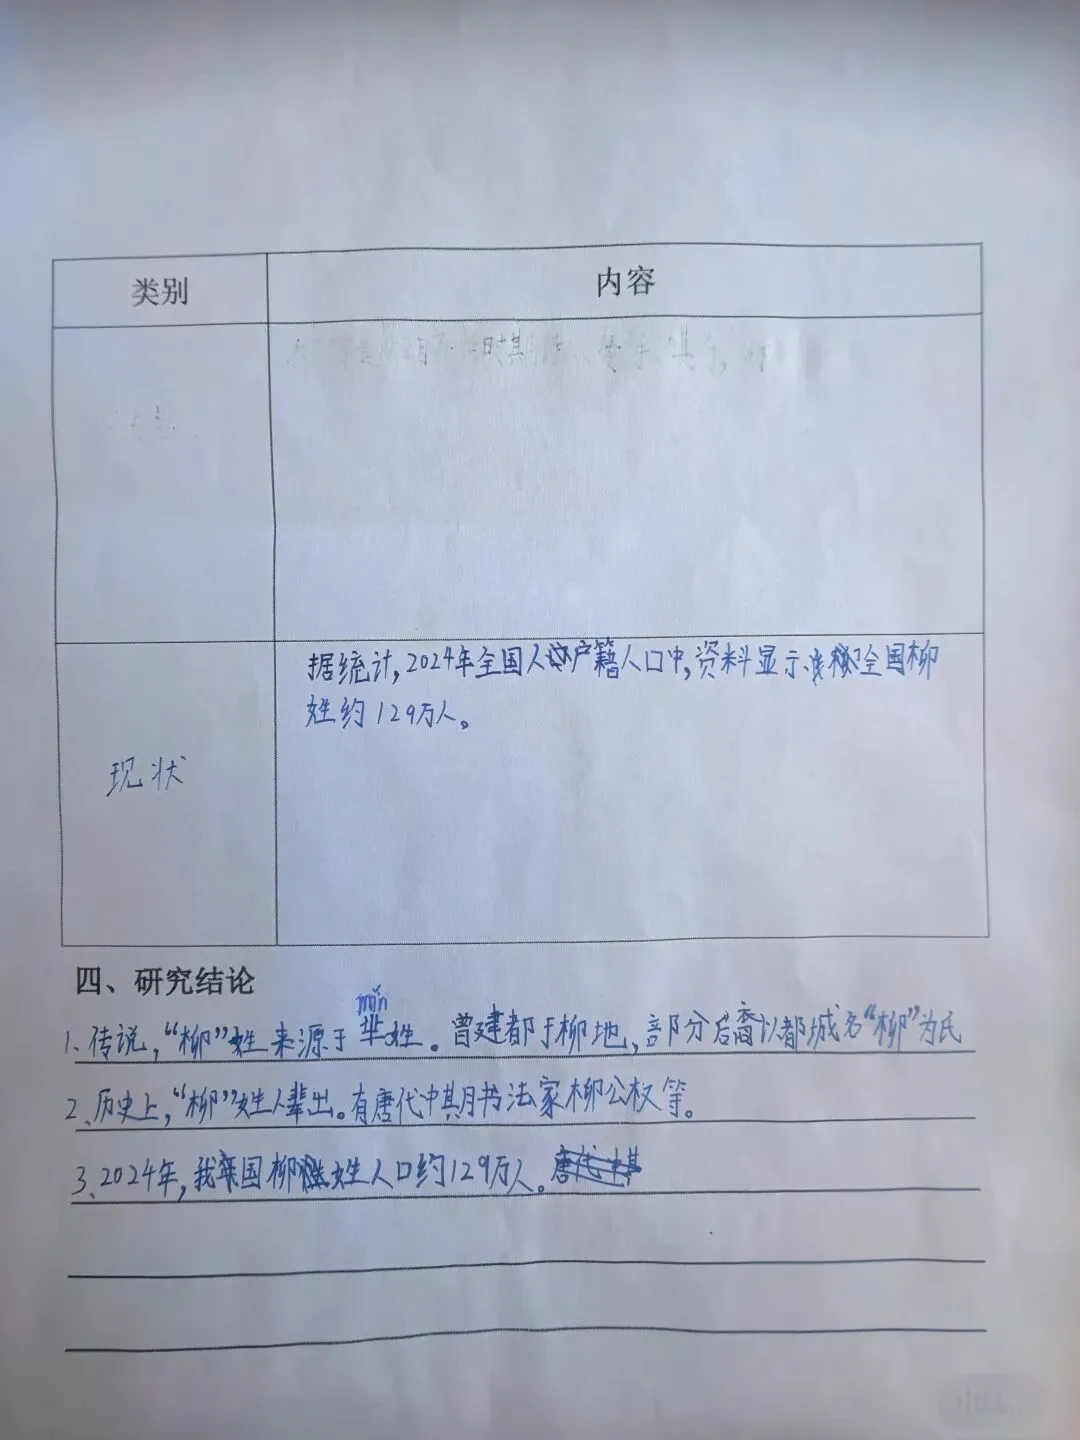 类别 内容
据统计,2024年全国人户籍人口中,资料显示全国柳
姓约129万人。
现状
四、研究结论
mǐn
1、传说,“柳”姓来源于芈姓。曾建都于柳地,部分后裔以都城名“柳”为氏
2、历史上,“柳”姓人辈出。有唐代中期书法家柳公权等。
3、2024年,我国柳姓人口约129万人。唐代中其